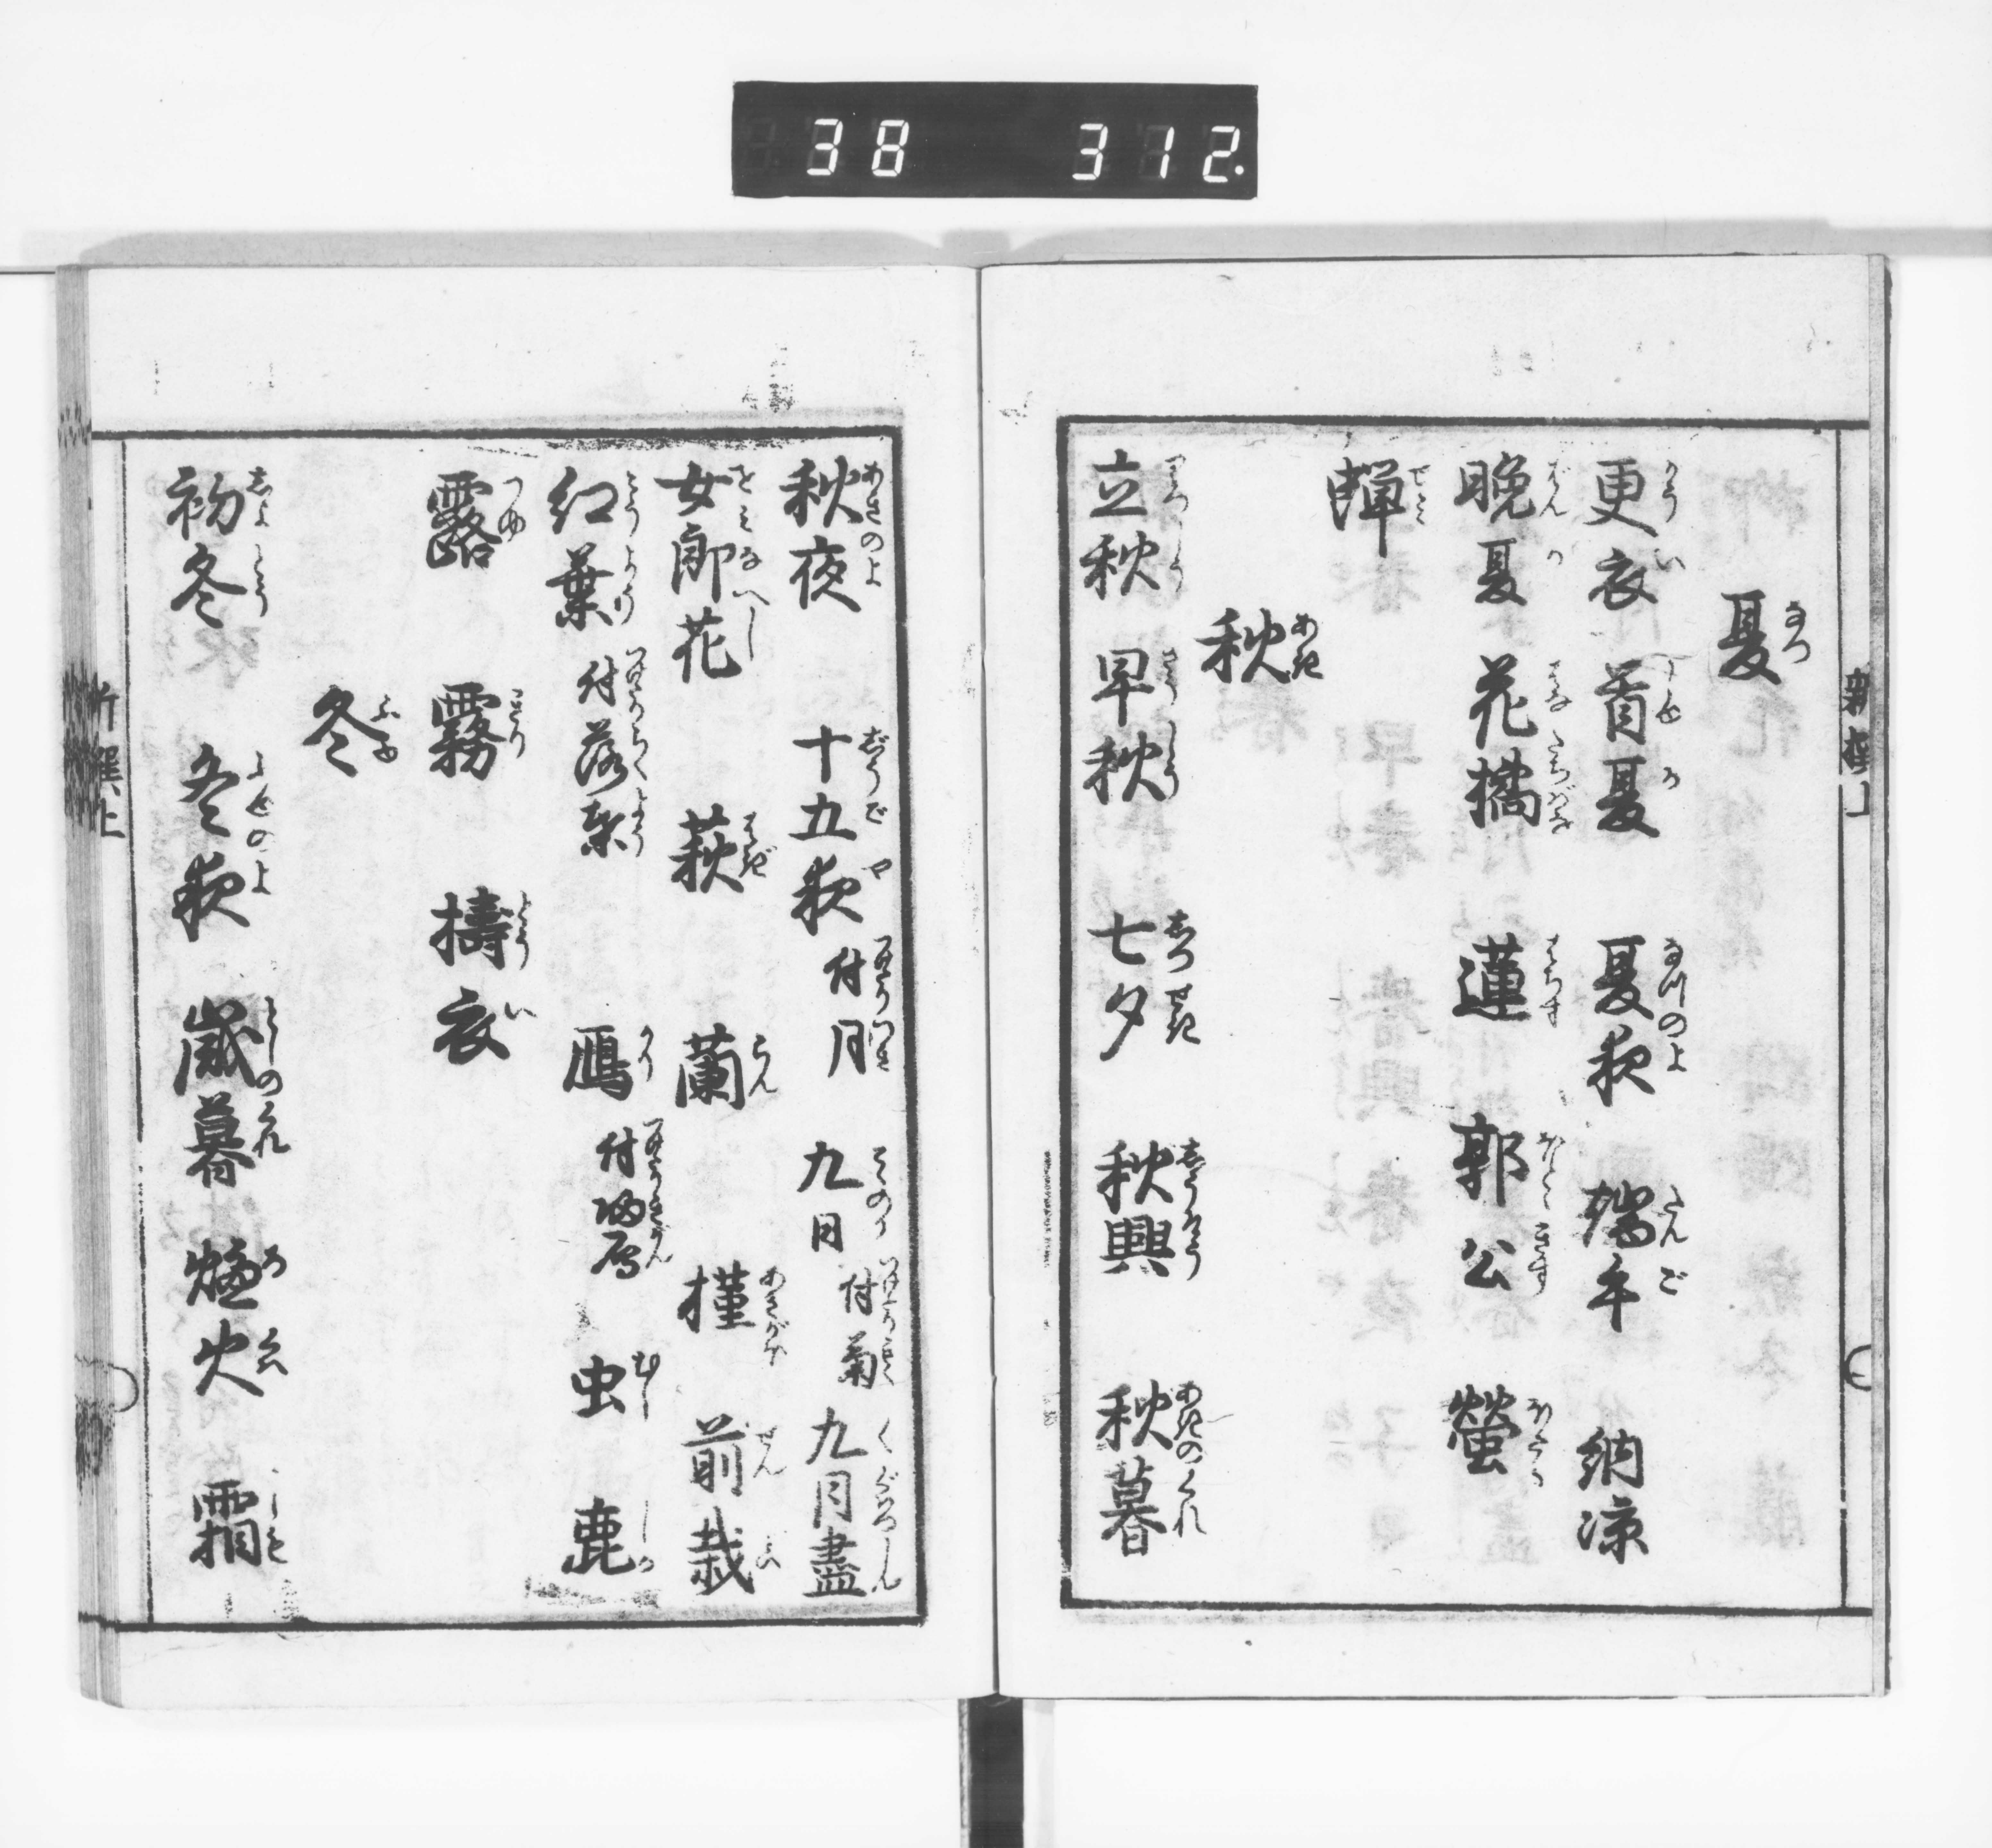 38 312
夏
更衣 首夏 夏夜 端午 納涼
晩夏 花橘 蓮 郭公 螢
蝉
秋
立秋 早秋 七夕 秋興 秋暮
秋夜 十五夜 付月 九日 付菊 九月盡
女郎花 萩 蘭 槿 前栽
紅葉 付落葉 鴈 付帰鴈 虫 鹿
露 霧 擣衣
冬
初冬 冬夜 歳暮 爐火 霜